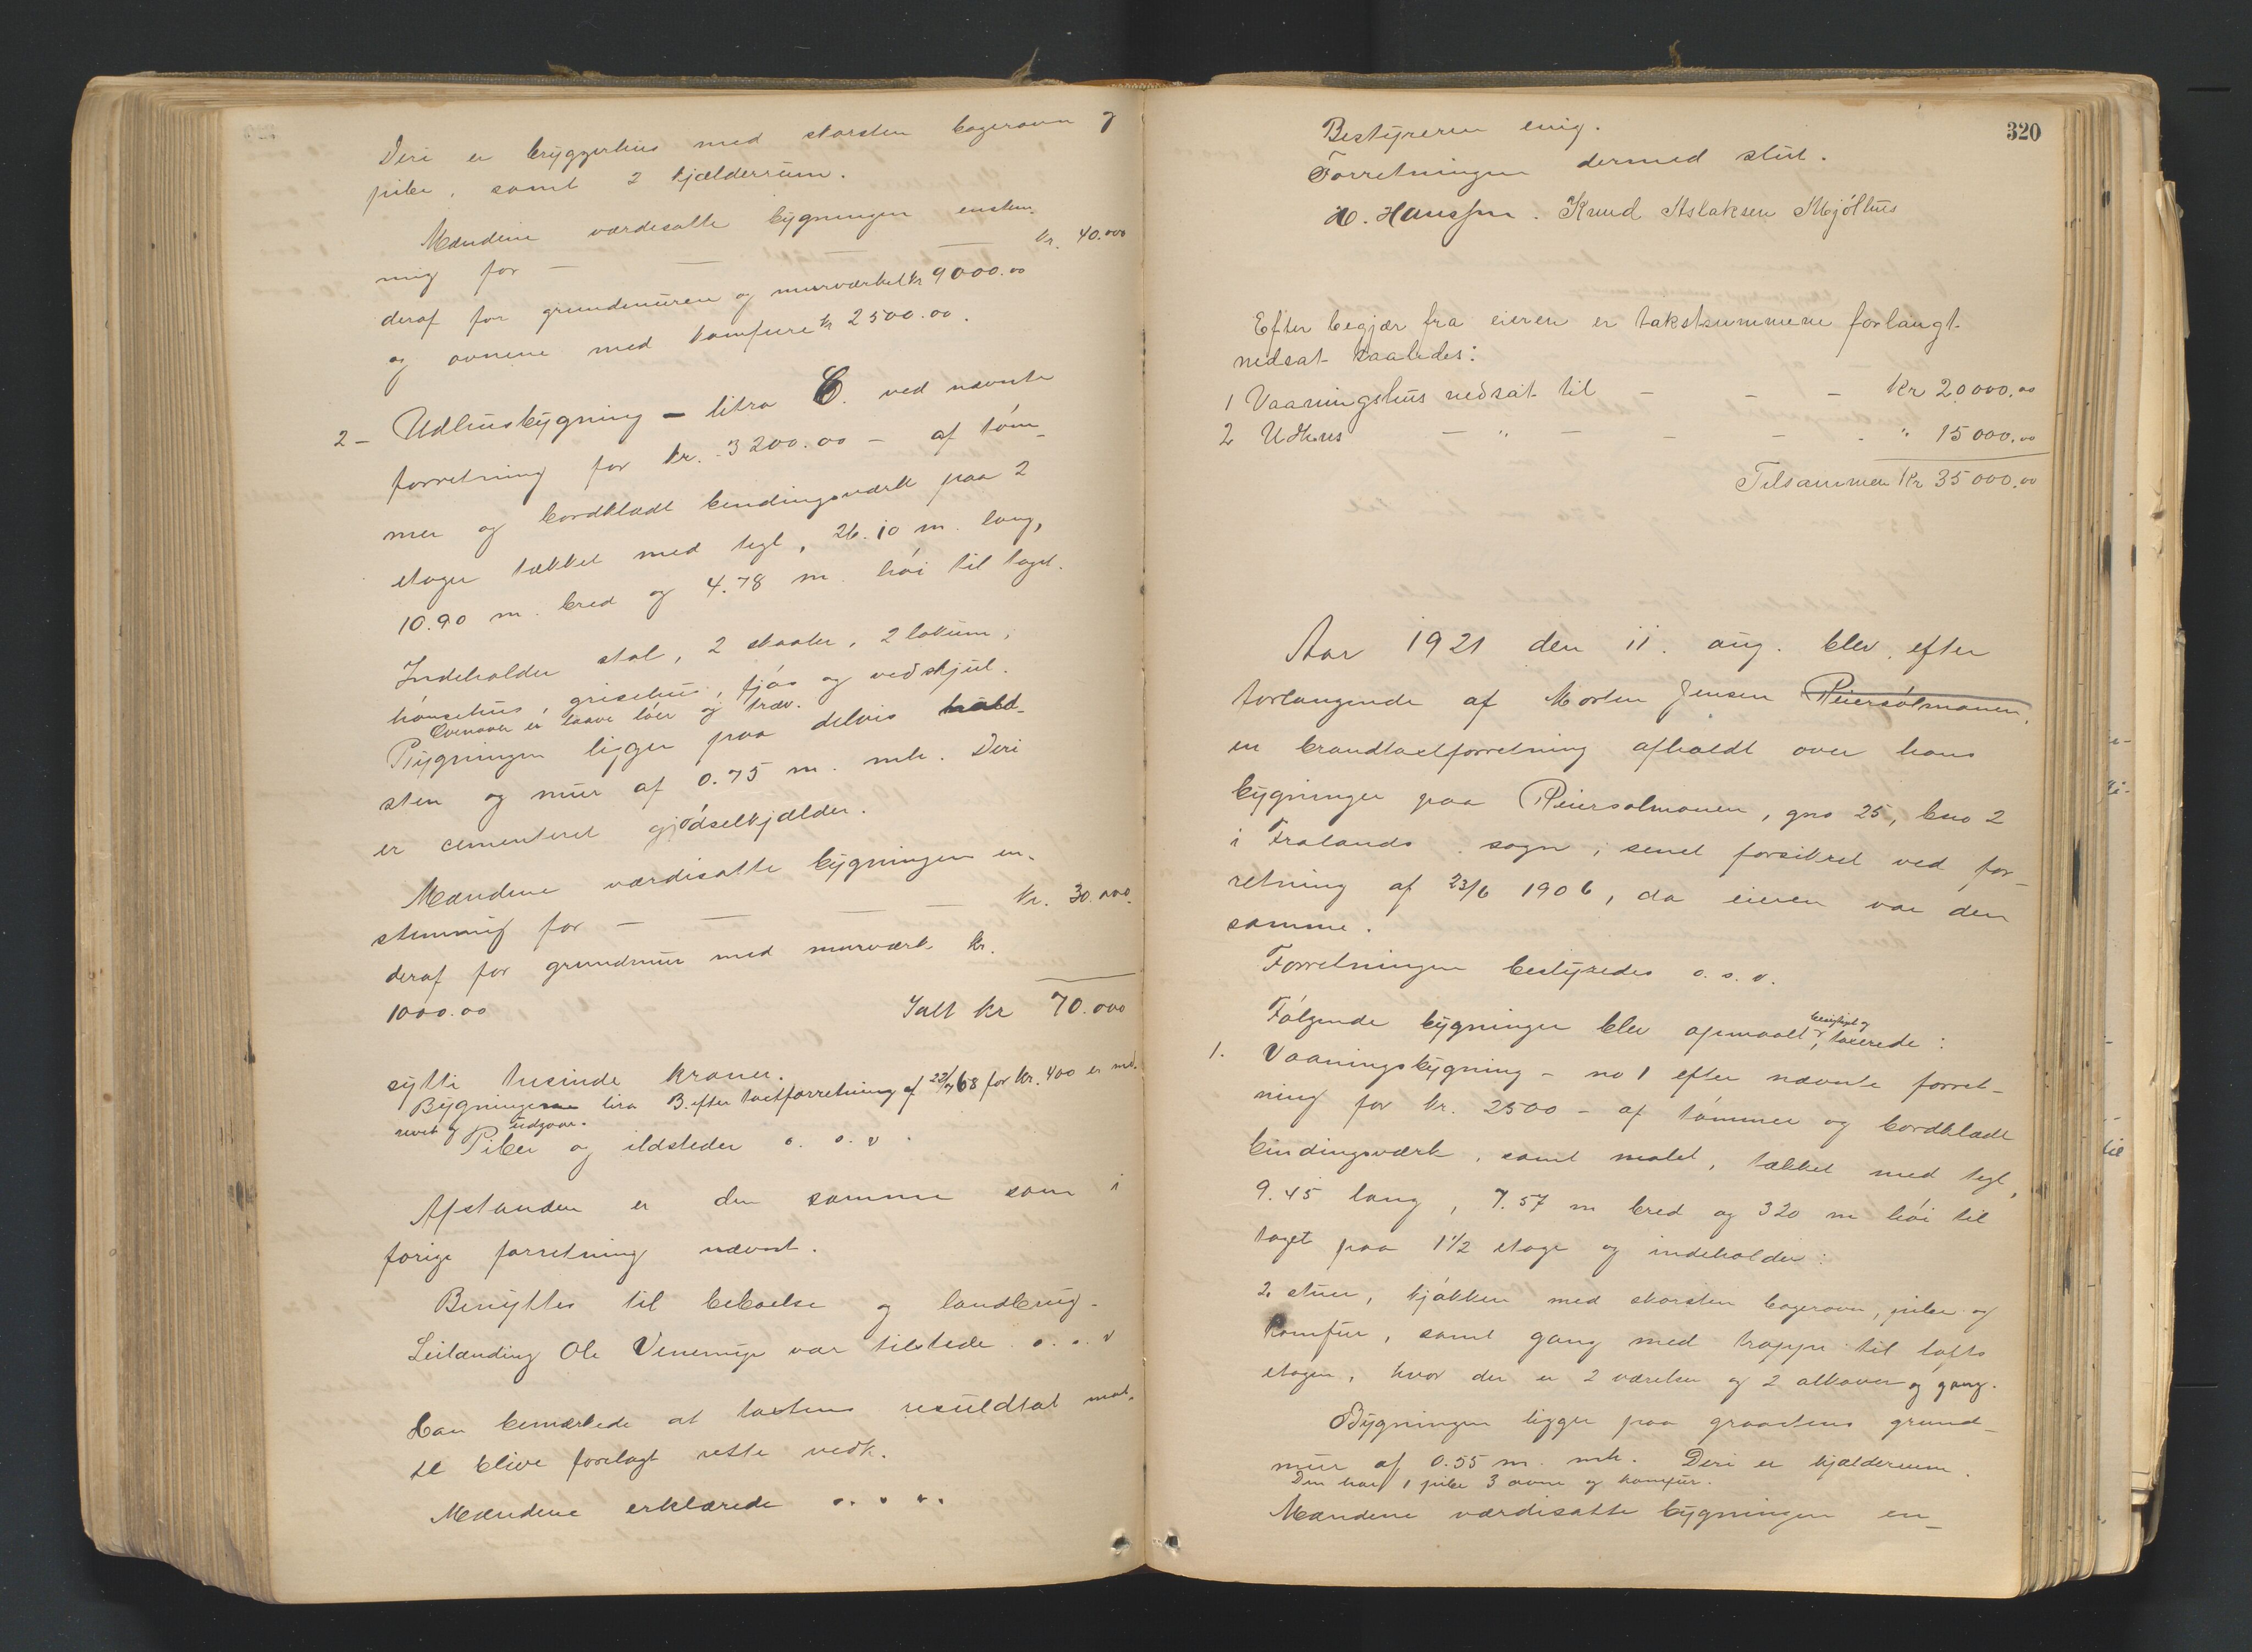 Deri er bryggerhus med skorsten bagerovn og
pibe, samt 2 kjælderrum.
Mændene værdisatte bygningen enstem-
mig for — — — — kr. 40.000
deraf for grundmuren og murværket kr 9000.00
og ovnene med komfure kr 2500.00.
2 - Udhusbygning - litra C. ved nævnte
forretning for kr. 3200.00 - af tøm-
mer og bordklædt bindingsværk paa 2
etager tækket med tegl, 26.10 m. lang,
10.90 m. bred og 4.78 m. høi til taget.
Indeholder stal, 2 skaaler, 2 lokum,
hønsehus, grisehus, fjøs og vedskjul.
Ovenover er laave løer og træv.
Bygningen ligger paa delvis hold-
sten og mur af 0.75 m. mh. Deri
er cementeret gjødselkjælder.
Mændene værdisatte bygningen en-
stemmig for — — — — kr. 30.000.
deraf for grundmur med murværk kr.
1000.00 Ialt kr 70.000
sytti tusinde kroner.
Bygningerne lira B. efter taxtforretning af 22/7 68 for kr. 400 er ned-
revet og udgaar.
Piber og ildsteder o. s. v.
Afstanden er den samme som i
forige forretning nævnt.
Benyttes til beboelse og landbrug.
Leilænding Ole Venemyr var tilstede o. s. v
Han bemærkede at taxtens resuldtat maa-
te blive forelagt rette vedk.
Mændene erklærede o. s. v.
320
Bestyreren enig.
Forretningen dermed slut.
H. Hanssen. Knud Aslaksen Mjølhus
Efter begjær fra eieren er takstsummene forlangt
nedsat saaledes:
1 Vaaningshus nedsat til - - - Kr 20000.00
2 Udhus - " - - - - " 15000.00
Tilsammen Kr 35000.00
Aar 1921 den 11. aug. blev efter
forlangende af Morten Jensen Reiersølmonen,
en brandtaxtforretning afholdt over hans
bygninger paa Reiersølmonen, gno 25, bno 2
i Frolands sogn; senet forsikret ved for-
retning af 23/6 1906, da eieren var den
samme.
Forretningen bestyredes o. s. v.
Følgende bygninger blev opmaalt, besigtiget og taxerede:
1. Vaaningsbygning - no 1 efter nævnte forret-
ning for kr. 2500 - af tømmer og bordklædt
bindingsværk, samt malet, tækket med tegl,
9.45 lang, 7.57 m bred og 320 m høi til
taget paa 1 1/2 etage og indeholder:
2 stuer, kjøkken med skorsten bagerovn, pibe og
komfur, samt gang med trappe til lofts
etagen, hvor der er 2 værelser og 2 alkover og gang.
Bygningen ligger paa graastens grund-
mur af 0.55 m. mh. Deri er kjælderrum.
Den har 1 pibe 3 ovne og komfur.
Mændene værdisatte bygningen en-